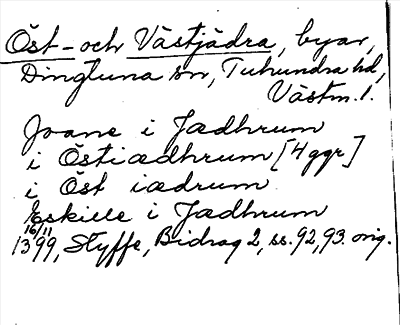 Öst- och Västjädra, byar,
Dingtuna sn, Tuhundra hd,
Västm. l.
Joane i Jædhrum
i Östiædhrum [4 ggr]
i Öst iædrum
Eskille i Jædhrum
16/11
1399, Styffe, Bidrag 2, ss. 92, 93. orig.